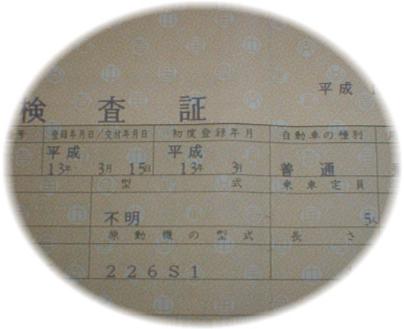 平成
検査証
号 登録年月日/交付年月日 初度登録年月 自動車の種別
平成 平成
13年 3月 15日 13年 3月 普通
型式 乗車定員
不明 5人
原動機の型式 長さ
226S1